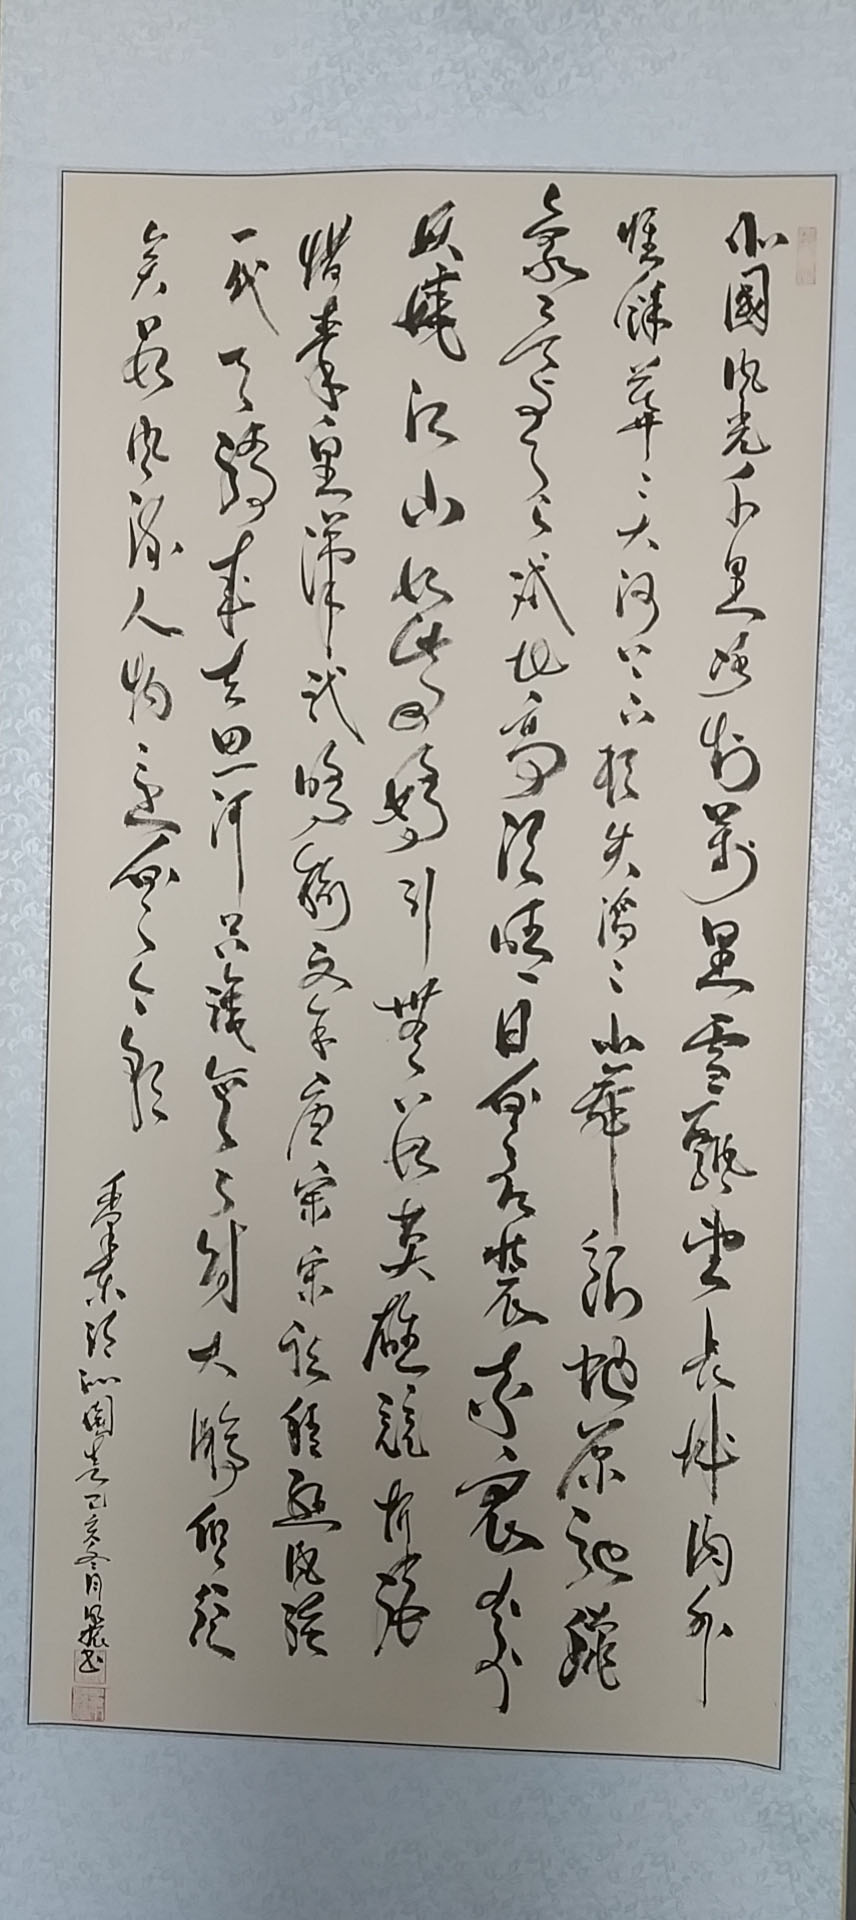 北國風光千里冰封萬里雪飄望長城内外
惟餘莽〻大河上下頓失滔〻山舞銀蛇原馳蠟
象欲與天公試比高須晴日看紅裝素裹分外
妖嬈江山如此多嬌引無數英雄競折腰
惜秦皇漢武略輸文采唐宗宋祖稍遜風騷
一代天驕成吉思汗只識彎弓射大雕俱往
矣數風流人物還看今朝
毛澤東詞沁園春己亥冬月書